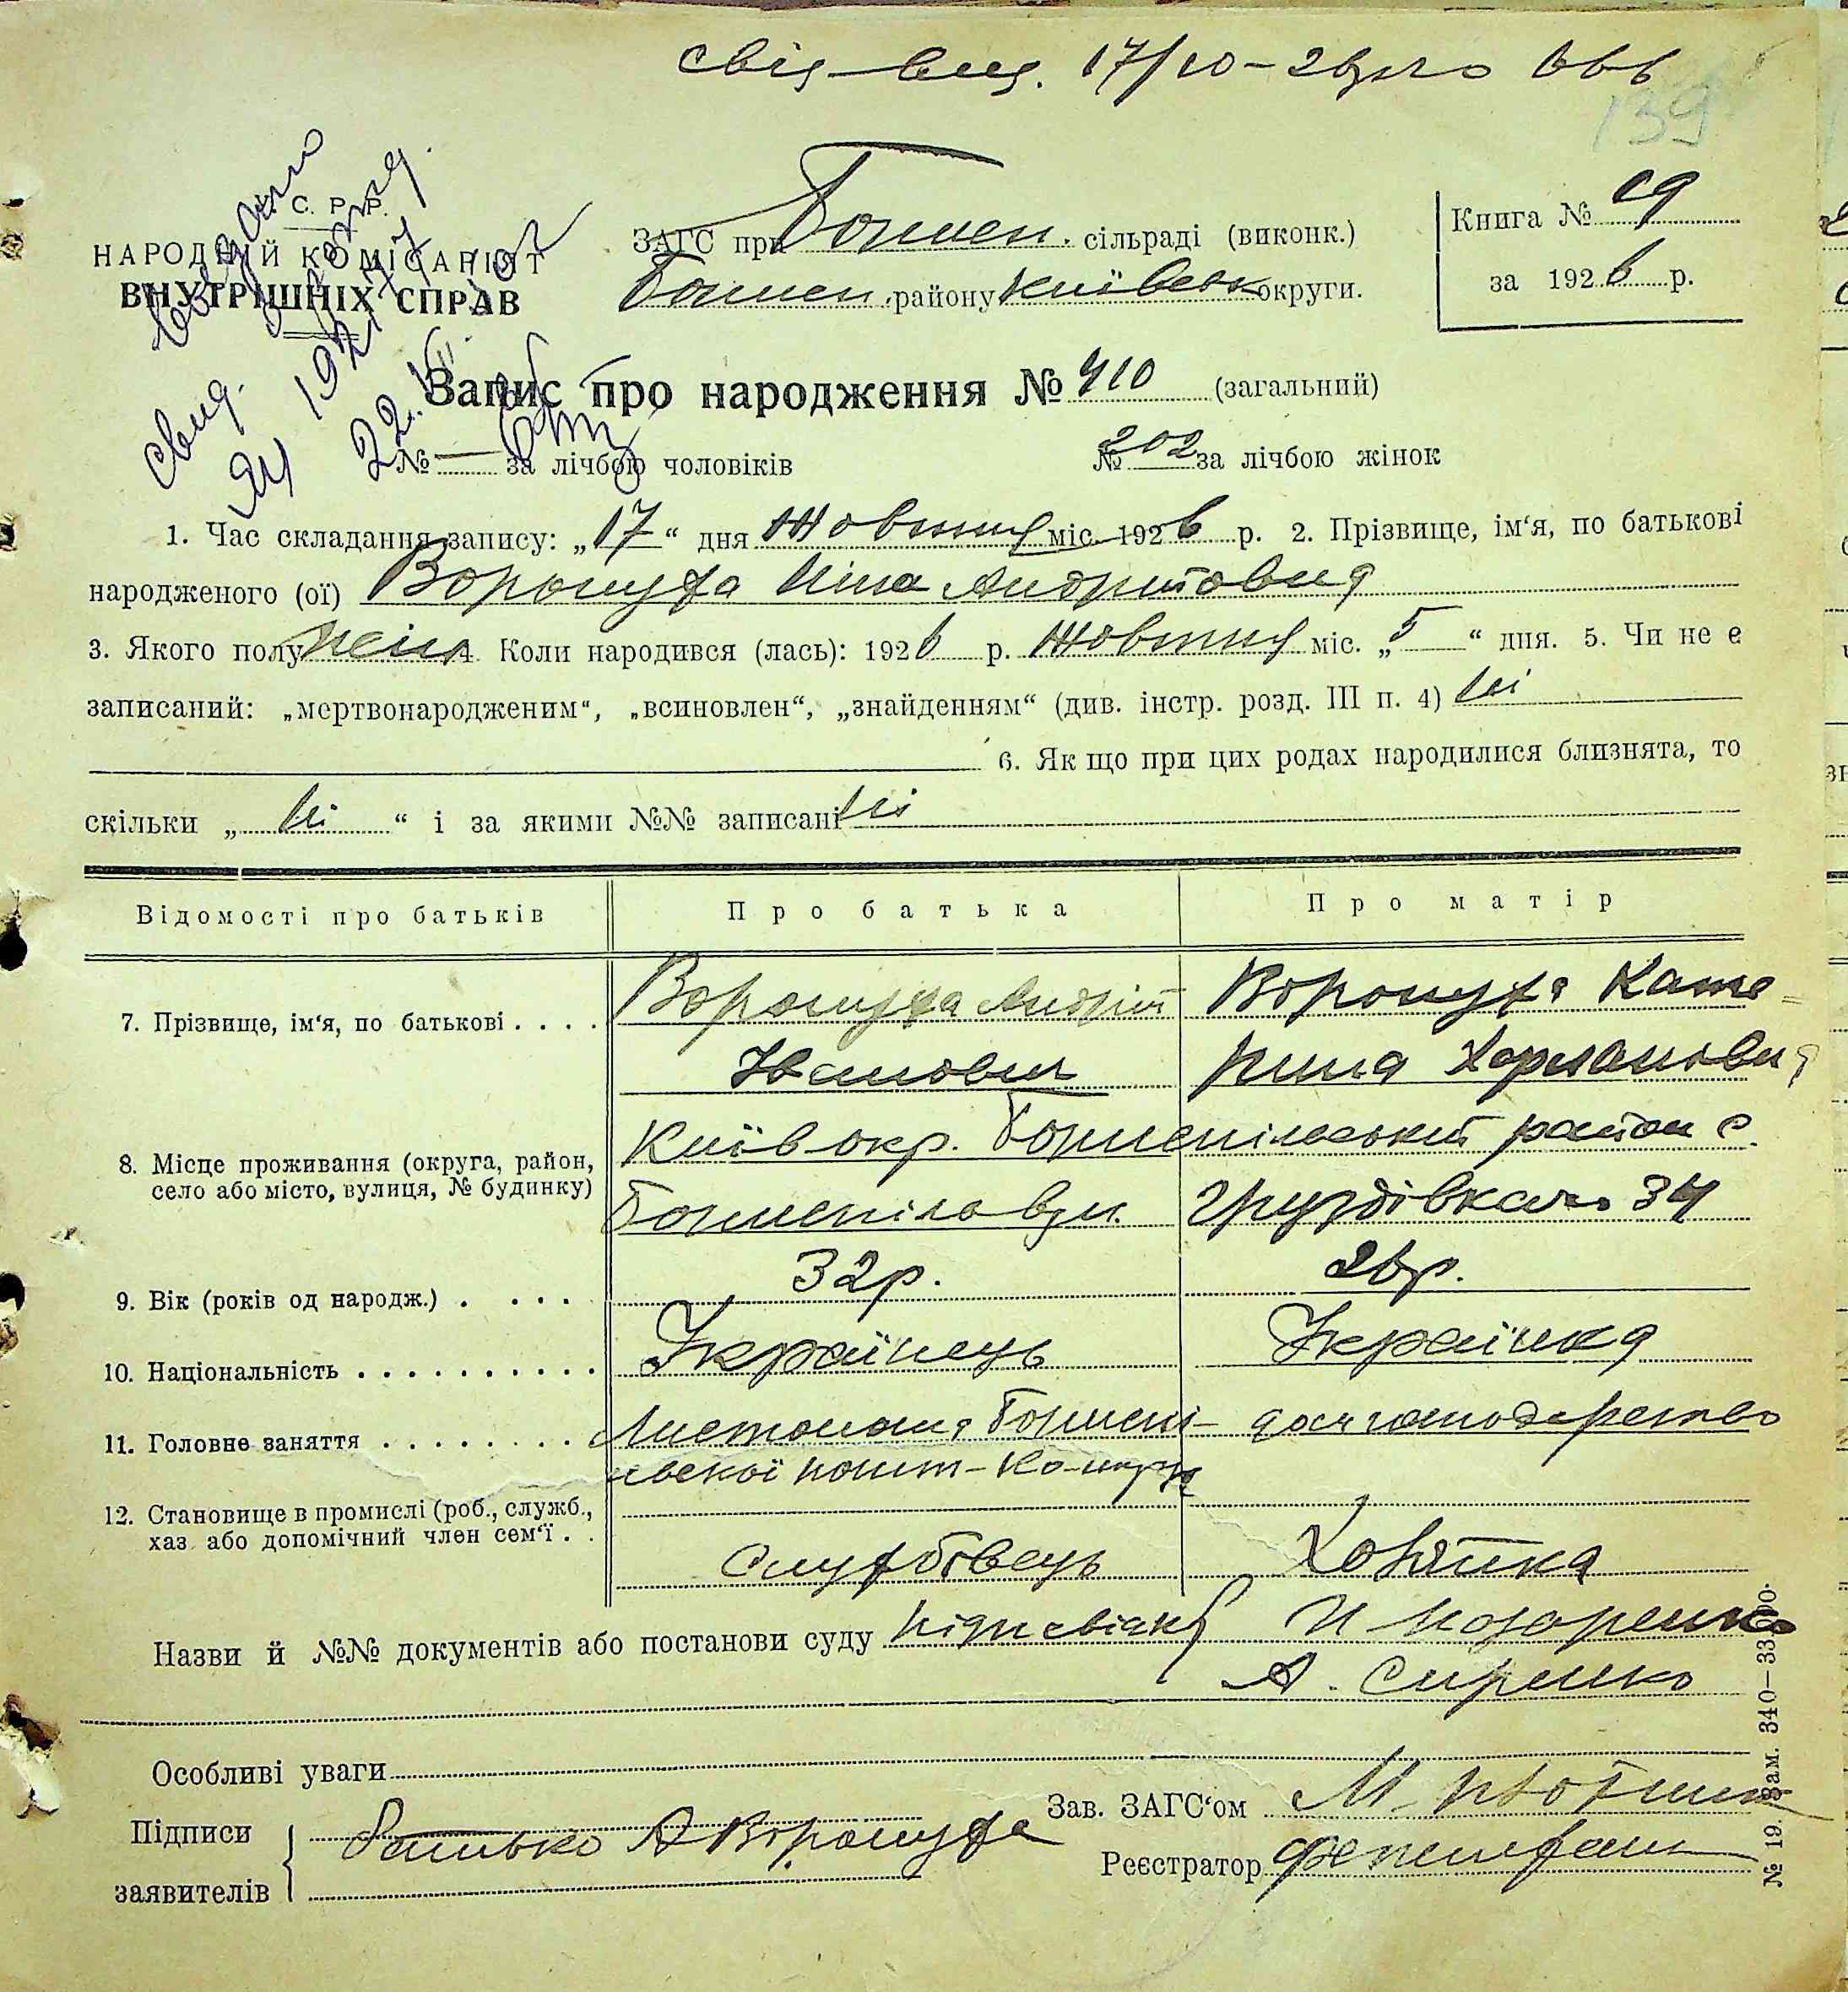 свід. вид. 17/10-26 року
139
С. Р. Р.
НАРОДНІЙ КОМІСАРІЯТ
ВНУТРІШНІХ СПРАВ
видано
свид.
ЗАГС при Боришп. сільраді (виконк.)
Боришп. району Київськ округи.
Книга № 19
за 1926 р.
Запис про народження № 410 (загальний)
№ — за лічбою чоловіків № 202 за лічбою жінок
1. Час складання запису: „17“ дня Жовтня міс. 1926 р. 2. Прізвище, ім‘я, по батькові
народженого (ої) Воронуха Ніна Андріївна
3. Якого полу жін. 4. Коли народився (лась): 1926 р. Жовтня міс. „5“ дня. 5. Чи не є
записаний: „мертвонародженим“, „всиновлен“, „знайденням“ (див. інстр. розд. III п. 4) ні
6. Як що при цих родах народилися близнята, то
скільки „ ні “ і за якими №№ записані ні
Відомості про батьків Про батька Про матір
7. Прізвище, ім‘я, по батькові . . . . Воронуха Андрій Воронуха Кате-
Іванович рина
8. Місце проживання (округа, район, Київ окр. Боришпільський район с.
село або місто, вулиця, № будинку) Боришпіль вул. 34
9. Вік (років од народж.) . . . . 32р. 26р.
10. Національність . . . . . . . . . . Українець Українка
11. Головне заняття . . . . . . . . Листоноша Боришпі- дом господарство
льської пошт-
12. Становище в промислі (роб., служб.,
хаз. або допомічний член сем‘ї . . Службовець Хозяйка
Назви й №№ документів або постанови суду
А. Сиренко
Особливі уваги
Підписи
заявителів
Батько А Воронуха
Зав. ЗАГС‘ом
Реєстратор
№ 19. Зам. 340—33